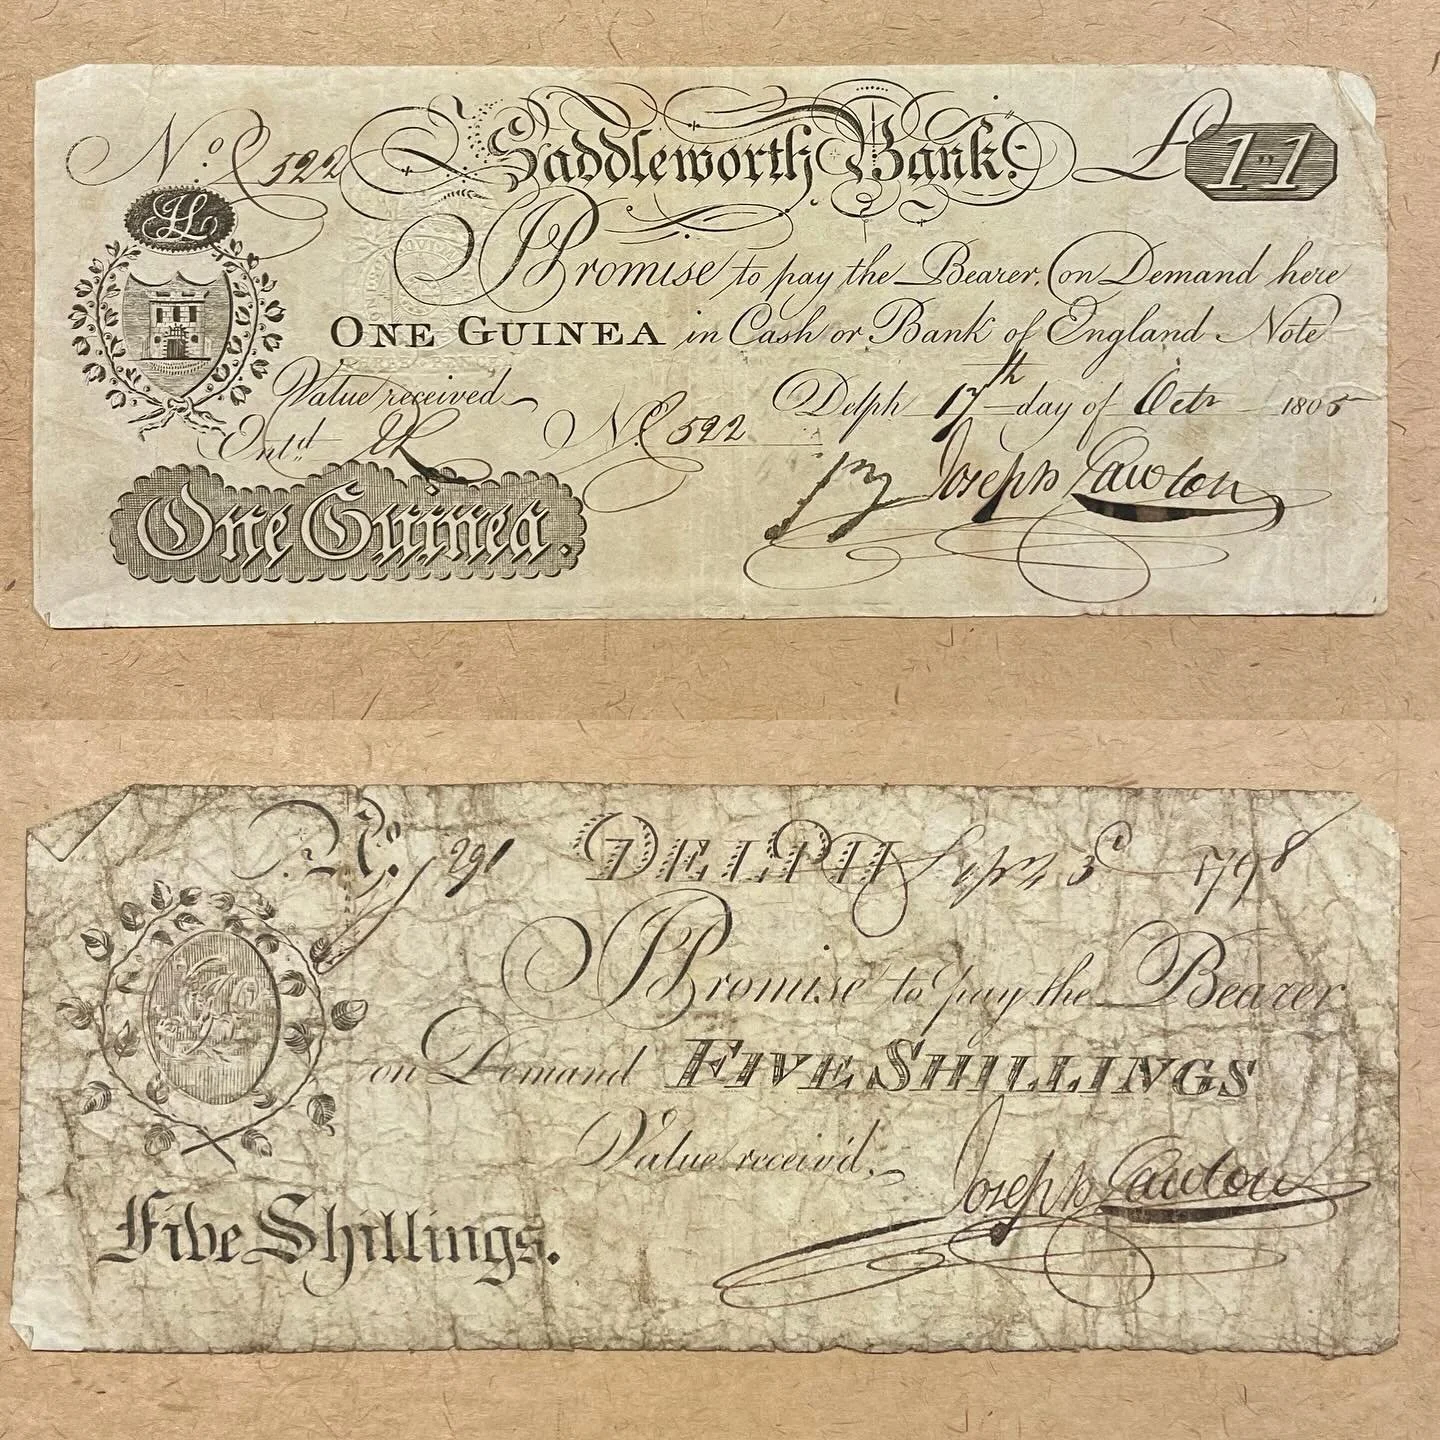 No. 522 Saddleworth Bank. £ 1"1
JL
I Promise to pay the Bearer, on Demand here
ONE GUINEA in Cash or Bank of England Note
Value received Delph 17th day of Octr 1805
Entd JL No. 522
py Joseph Lawton
One Guinea.
No. 291 DELPH Sepr 3d 1798
I Promise to pay the Bearer
on Demand FIVE SHILLINGS
Value receiv'd,
Joseph Lawton
Five Shillings.